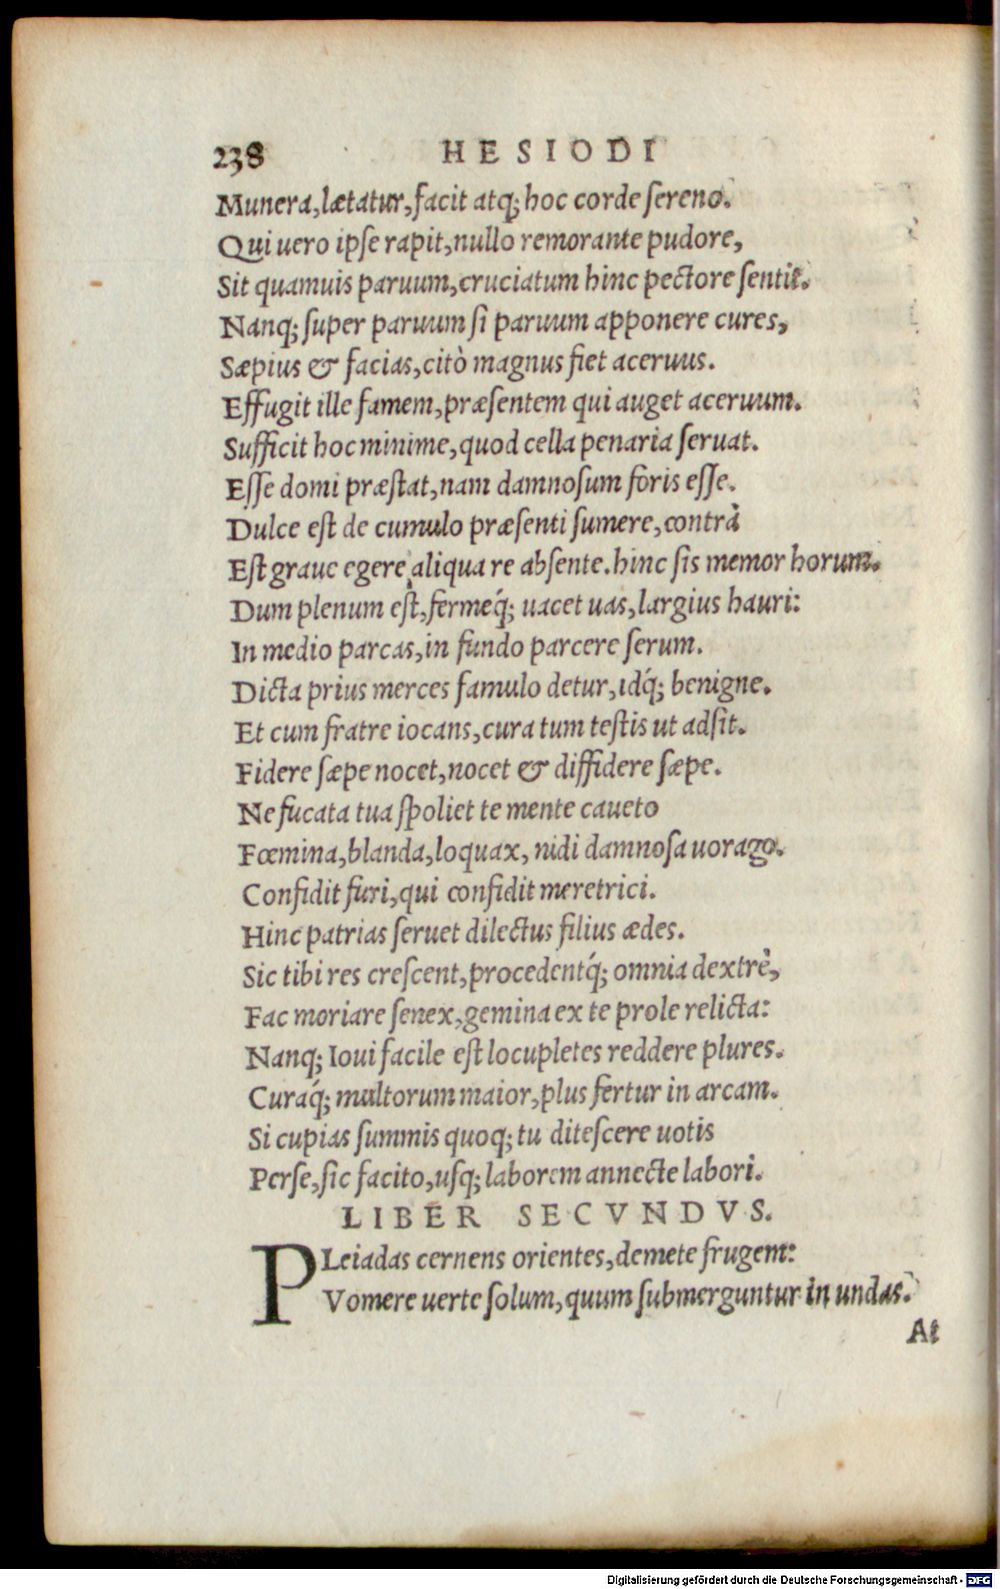 238 HESIODI
Munera, lætatur, facit atq; hoc corde sereno.
Qui uero ipse rapit, nullo remorante pudore,
Sit quamuis paruum, cruciatum hinc pectore sentit.
Nanq; super paruum si paruum apponere cures,
Sæpius & facias, citò magnus fiet aceruus.
Effugit ille famem, præsentem qui auget aceruum.
Sufficit hoc minime, quod cella penaria seruat.
Esse domi præstat, nam damnosum foris esse.
Dulce est de cumulo præsenti sumere, contrà
Est graue egere aliqua re absente. hinc sis memor horum.
Dum plenum est, fermeq́; uacet uas, largius hauri:
In medio parcas, in fundo parcere serum.
Dicta prius merces famulo detur, idq́; benigne.
Et cum fratre iocans, cura tum testis ut adsit.
Fidere sæpe nocet, nocet & diffidere sæpe.
Ne fucata tua spoliet te mente caueto
Fœmina, blanda, loquax, nidi damnosa uorago.
Confidit furi, qui confidit meretrici.
Hinc patrias seruet dilectus filius ædes.
Sic tibi res crescent, procedentq́; omnia dextrè,
Fac moriare senex, gemina ex te prole relicta:
Nanq; Ioui facile est locupletes reddere plures.
Curaq́; multorum maior, plus fertur in arcam.
Si cupias summis quoq; tu ditescere uotis
Perse, sic facito, usq; laborem annecte labori.
LIBER SECVNDVS.
PLeiadas cernens orientes, demete frugem:
Vomere uerte solum, quum submerguntur in undas.
At
Digitalisierung gefördert durch die Deutsche Forschungsgemeinschaft - DFG